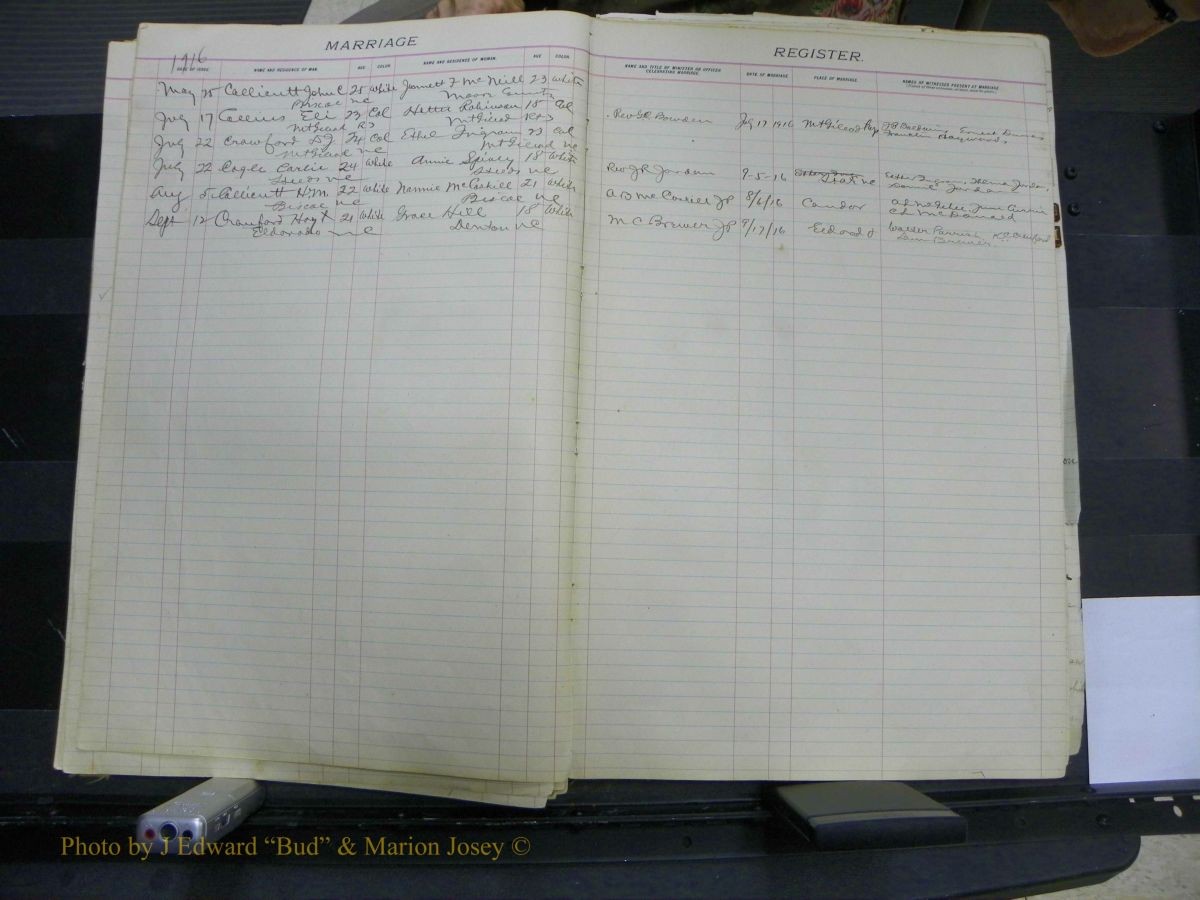 MARRIAGE
REGISTER.
1916
DATE OF ISSUE. NAME AND RESIDENCE OF MAN. AGE COLOR NAME AND RESIDENCE OF WOMAN. AGE COLOR
NAME AND TITLE OF MINISTER OR OFFICER CELEBRATING MARRIAGE. DATE OF MARRIAGE. PLACE OF MARRIAGE. NAMES OF WITNESSES PRESENT AT MARRIAGE
May 25 Callicutt John C 25 White Jannett F McNeill 23 White
Biscoe NC Moore County
July 17 Collins Eli 23 Col Hettie Robinson 18 Col Rev Bowden July 17 1916 Mt Gilead
Mt Gilead R3 Mt Gilead R#3
July 22 Crawford 24 Col Ethel Ingram 23 Col
Mt Gilead NC Mt Gilead NC
July 22 Cagle Carlie 24 White Annie Spivey 18 White Rev J R Jordan 9-5-16 Star NC
Steeds NC Steeds NC
Aug 5 Callicutt H.M. 22 White Nannie McCaskill 21 White 8/6/16 Candor
Biscoe NC Biscoe NC C L McDonald
Sept 12 Crawford Hoyt 21 White Grace Hill 18 White M C Brewer JP 9/17/16 Eldorado Walter Parrish
Eldorado NC Denton NC Brewer
Photo by J Edward “Bud” & Marion Josey ©